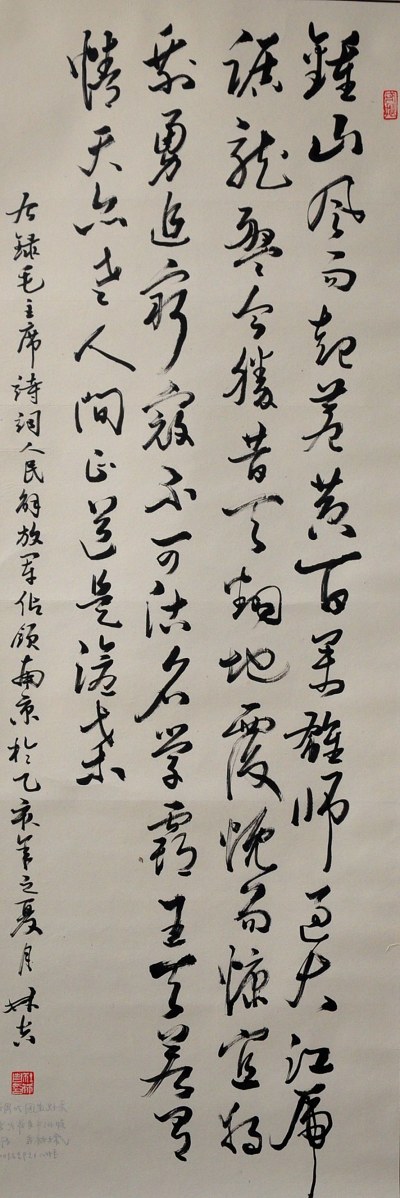 鍾山風雨起蒼黃百萬雄師過大江虎
踞龍盤今勝昔天翻地覆慨而慷宜將
剩勇追窮寇不可沽名學霸王天若有
情天亦老人間正道是滄桑
右録毛主席詩詞人民解放軍佔領南京於乙亥年之夏月